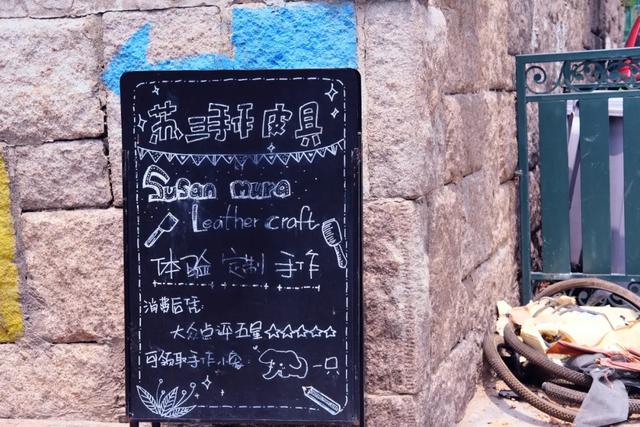 苏三手作皮具
Susan mura
Leather craft
体验 定制 手作
消费后凭
大众点评五星☆☆☆☆☆
可领取手作小象
一只